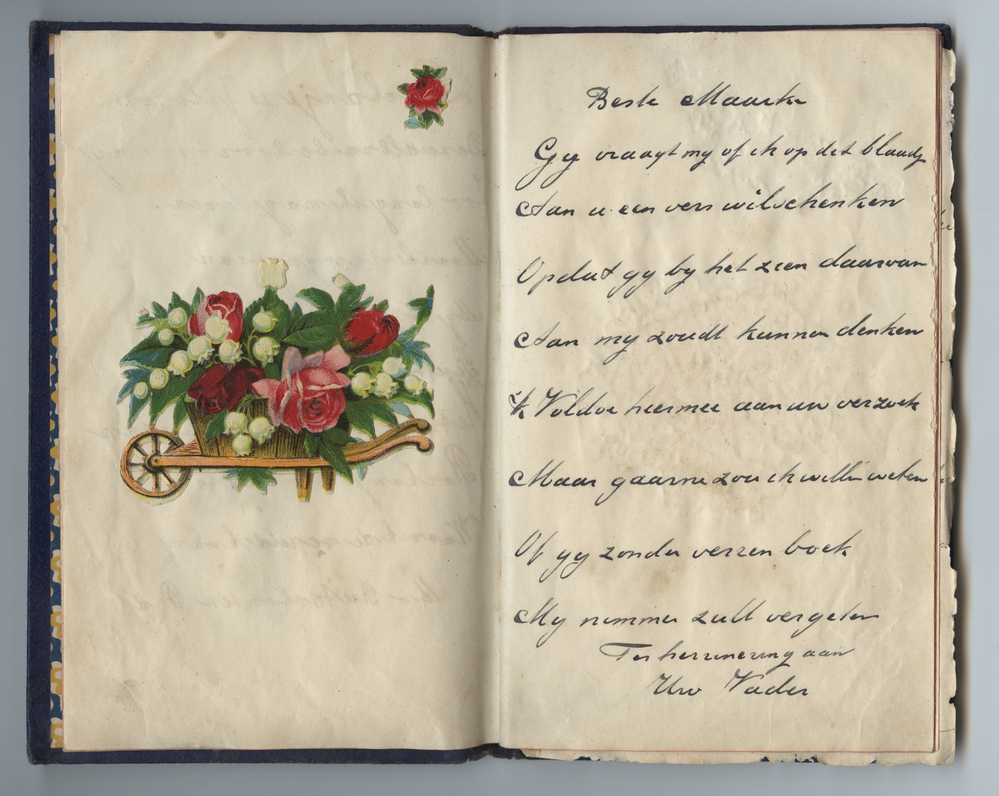 Beste Maarke
Gy vraagt my of ik op dit blaadj
Aan u een vers wil schenken
Opdat gy by het zien daarvan
Aan my zoudt kunnen denken
'k Voldoe hiermee aan uw verzoek
Maar gaarne zou ik willen weten
Of gy zonder verzen boek
My nimmer zult vergeten
Ter herinnering aan
Uw Vader